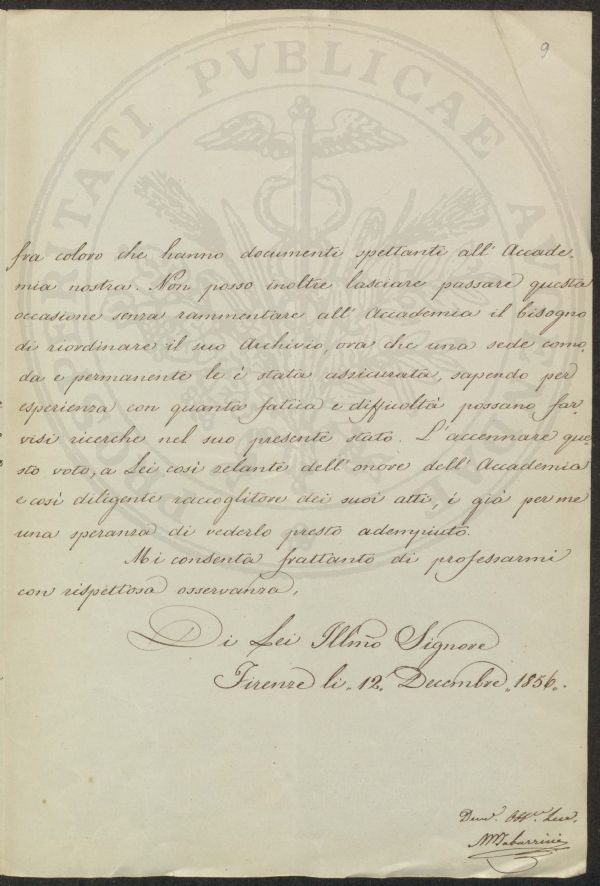 9
fra coloro che hanno documenti spettanti all' Accade-
mia nostra. Non posso inoltre lasciare passare questa
occasione senza rammentare all' Accademia il bisogno
di riordinare il suo Archivio, ora che una sede como-
da e permanente le è stata assicurata, sapendo per
esperienza con quanta fatica e difficoltà possano far-
visi ricerche nel suo presente stato. L'accennare que-
sto voto, a Lei così zelante dell' onore dell' Accademia
e così diligente raccoglitore dei suoi atti, è già per me
una speranza di vederlo presto adempiuto.
Mi consenta frattanto di professarmi
con rispettosa osservanza,
Di Lei Illmo Signore
Firenze li 12. Decembre 1856.
Dev.
MTabarrini
PVBLICAE